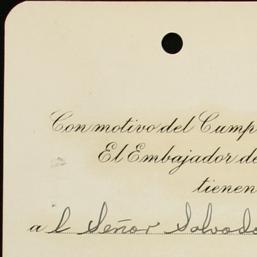 Con motivo del Cump
El Embajador de
tienen
a l Señor Salvado